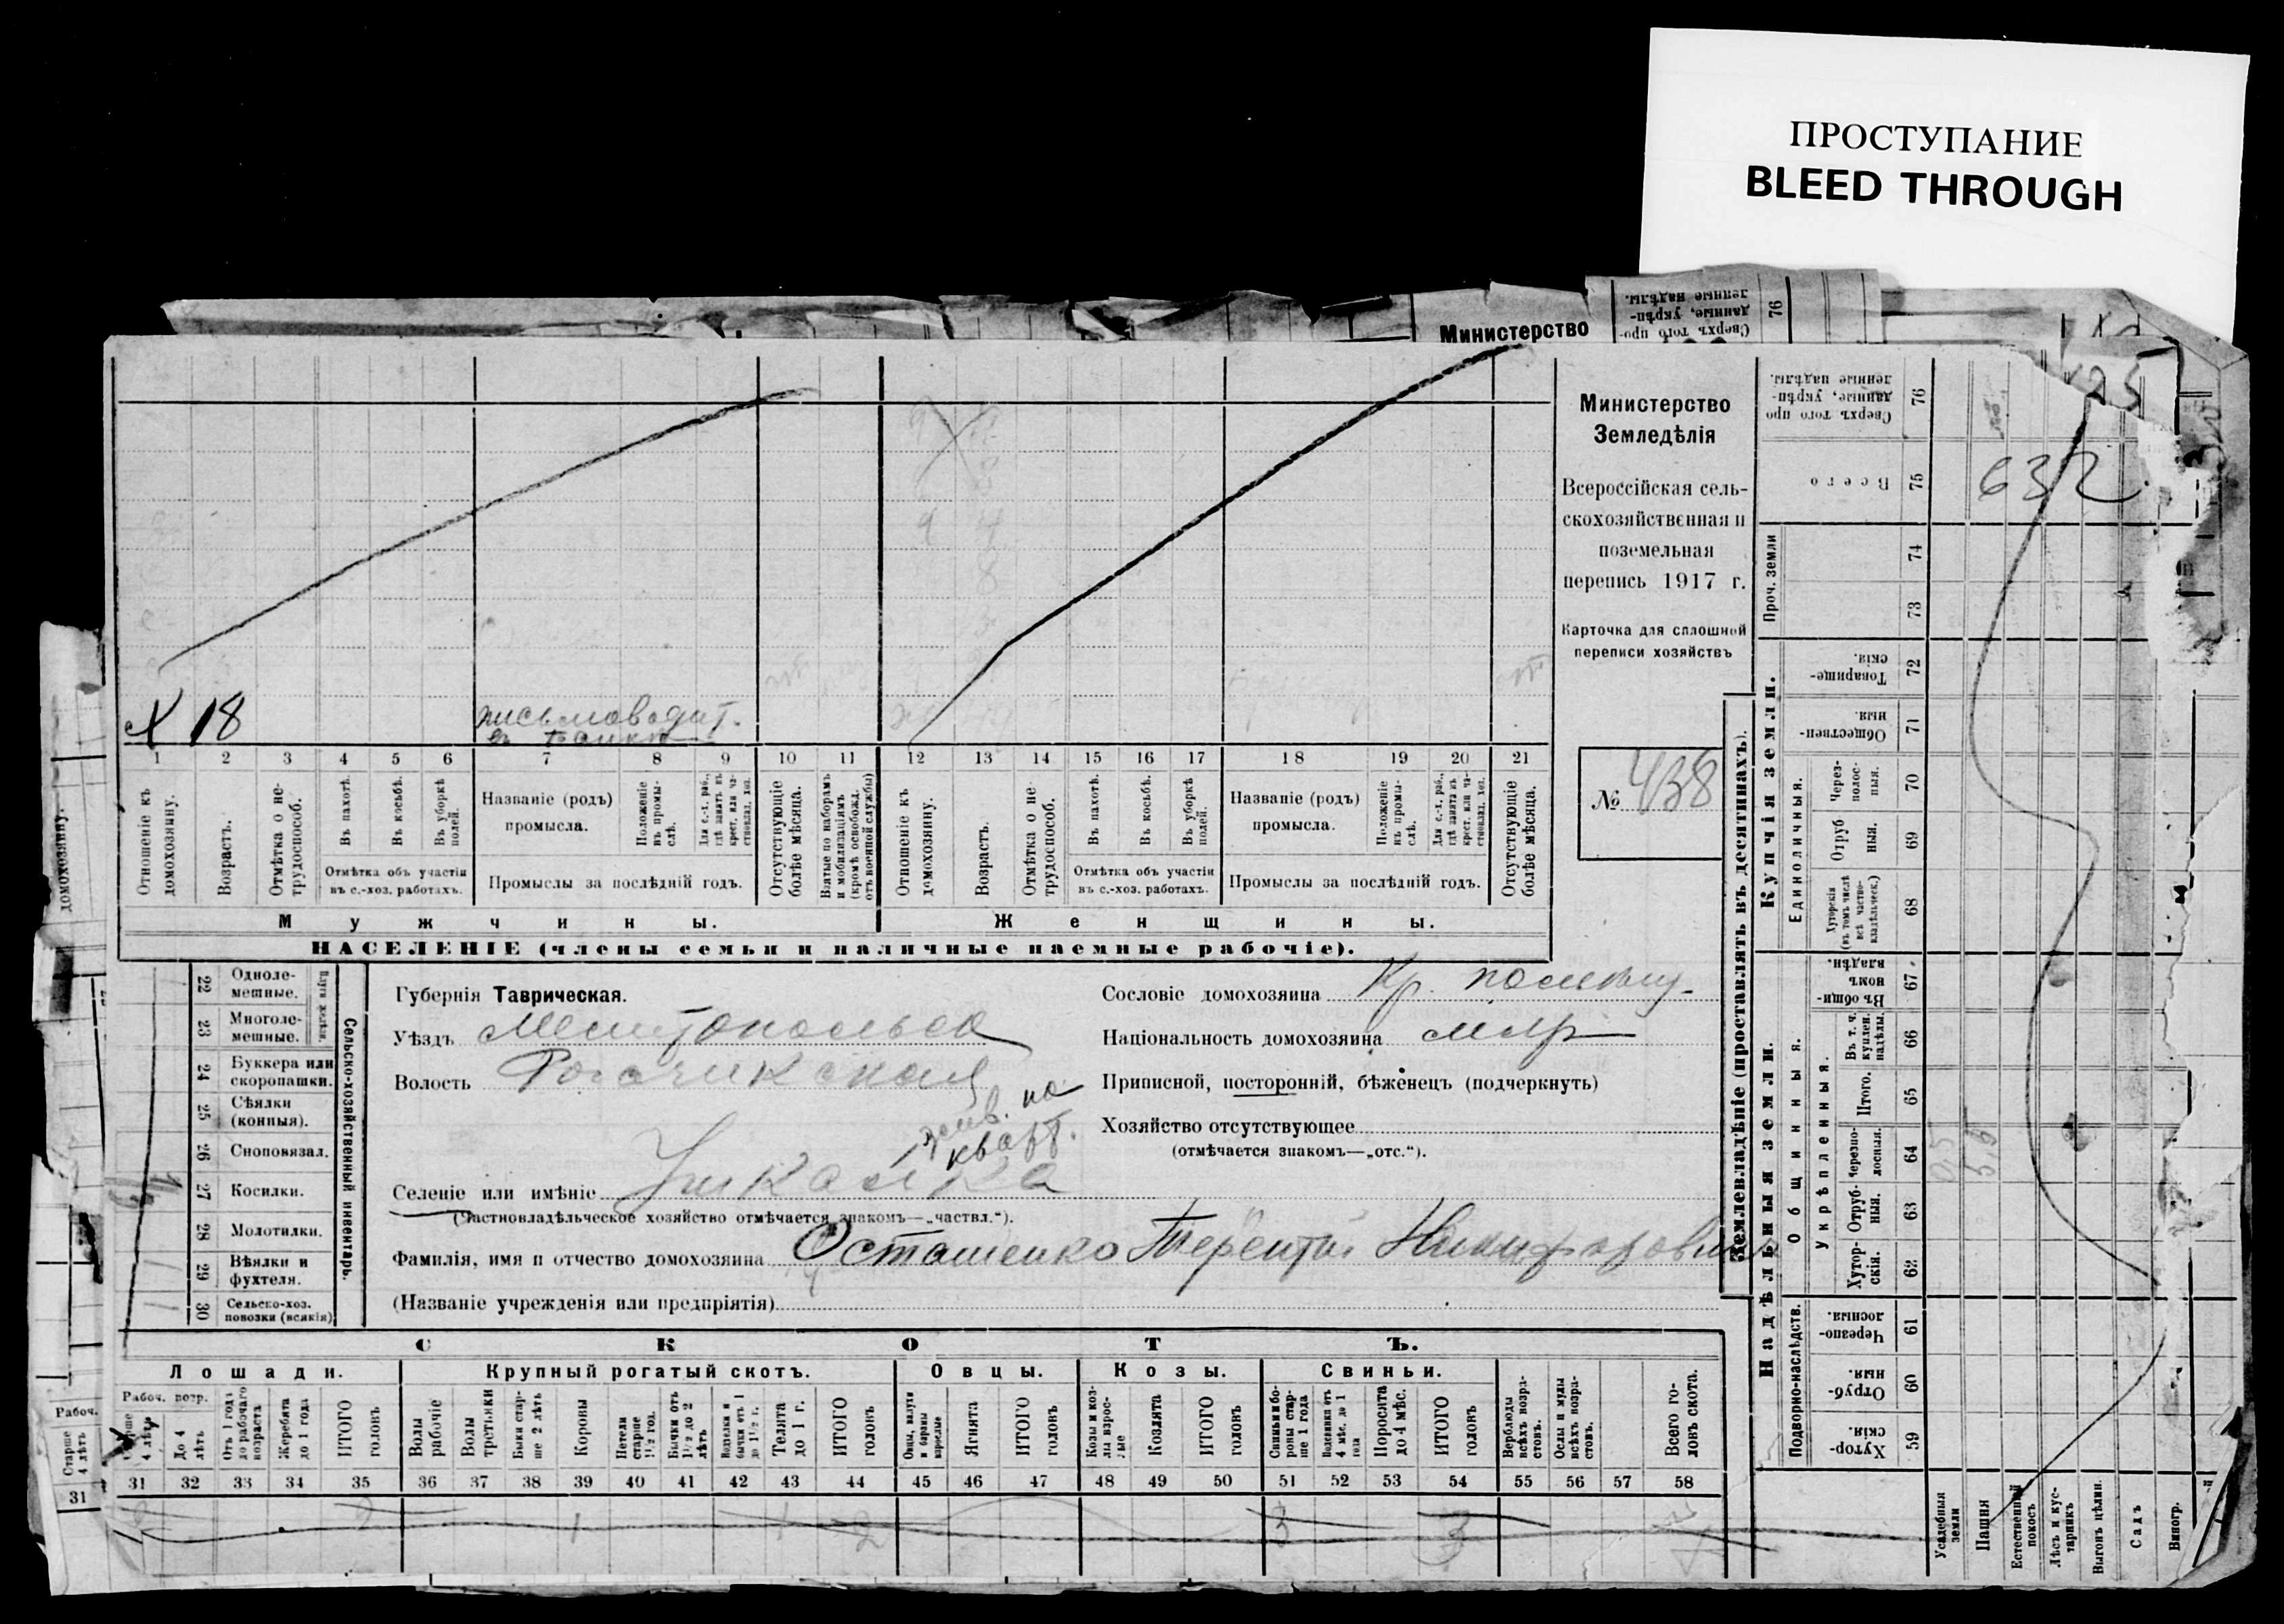 ПРОСТУПАНИЕ
BLEED THROUGH
Министерство
Сверхъ того про-
данные, укрѣп-
ленные надѣлы.
76
Х 18
письмоводит.
въ банкѣ
1 2 3 4 5 6 7 8 9 10 11 12 13 14 15 16 17 18 19 20 21
Отношеніе къ домохозяину.
Возрастъ.
Отмѣтка о не-трудоспособ.
Въ пахотѣ.
Въ косьбѣ.
Въ уборкѣ полей.
Отмѣтка объ участіи въ с.-хоз. работахъ.
Названіе (родъ) промысла.
Положеніе въ промы-слѣ.
Для с.-х. раб., гдѣ занятъ въ крест. или ча-стновлад. хоз.
Промыслы за послѣдній годъ.
Отсутствующіе болѣе мѣсяца.
Взятые по наборамъ и мобилизаціямъ (кромѣ освобожд. отъ военной службы)
Отношеніе къ домохозяину.
Возрастъ.
Отмѣтка о не-трудоспособ.
Въ пахотѣ.
Въ косьбѣ.
Въ уборкѣ полей.
Отмѣтка объ участіи въ с.-хоз. работахъ.
Названіе (родъ) промысла.
Положеніе въ промы-слѣ.
Для с.-х. раб., гдѣ занята въ крест. или ча-стновлад. хоз.
Промыслы за послѣдній годъ.
Отсутствующіе болѣе мѣсяца.
Мужчины. Женщины.
НАСЕЛЕНІЕ (члены семьи и наличные наемные рабочіе).
Министерство
Земледѣлія
Всероссійская сель-
скохозяйственная и
поземельная
перепись 1917 г.
Карточка для сплошной
переписи хозяйствъ
№ 438
22 Одноле-мешные.
23 Многоле-мешные.
24 Буккера или скоропашки.
25 Сѣялки (конныя).
26 Сноповязал.
27 Косилки.
28 Молотилки.
29 Вѣялки и фухтеля.
30 Сельско-хоз. повозки (всякія)
Сельско-хозяйственный инвентарь.
Губернія Таврическая.
Уѣздъ Мелитопольск
Волость Рогачикская
жив. на
кварт.
Селеніе или имѣніе
(Частновладѣльческое хозяйство отмѣчается знакомъ—„частвл.“).
Фамилія, имя и отчество домохозяина Осташенко Терентій Никифорович
(Названіе учрежденія или предпріятія)
Сословіе домохозяина Кр.
Національность домохозяина млр
Приписной, посторонній, бѣженецъ (подчеркнуть)
Хозяйство отсутствующее
(отмѣчается знакомъ—„отс.“).
СКОТЪ.
Лошади. Крупный рогатый скотъ. Овцы. Козы. Свиньи.
Рабоч. возр.
Старше 4 лѣтъ
До 4 лѣтъ
Отъ 1 года до рабочаго возраста
Жеребята до 1 года
ИТОГО головъ
Волы рабочіе
Волы третьяки
Быки стар-ше 2 лѣтъ
Коровы
Нетели старше 1½ год.
Бычки отъ 1½ до 2 лѣтъ
Телята до 1 г.
ИТОГО головъ
Овцы, валухи и бараны взрослые
Ягнята
ИТОГО головъ
Козы и коз-лы взрос-лые
Козлята
ИТОГО головъ
Свиньи и бо-ровы стар-ше 1 года
Подсвинки отъ 4 мѣс. до 1 года
Поросята до 4 мѣс.
ИТОГО головъ
Верблюды всѣхъ возра-стовъ.
Ослы и мулы всѣхъ возра-стовъ.
Всего го-ловъ скота.
31 32 33 34 35 36 37 38 39 40 41 42 43 44 45 46 47 48 49 50 51 52 53 54 55 56 57 58
2 1 2 3 3
Рабоч.
Старше 4 лѣтъ
31
домохозяину.
Землевладѣніе (проставлять въ десятинахъ).
Надѣльныя земли.
Купчія земли.
Проч. земли
Подворно-наслѣдств.
Общинныя.
Укрѣпленныя.
Единоличныя.
Сверхъ того про-данные, укрѣп-ленные надѣлы. 76
Всего 75
74
73
Товарище-скія. 72
Обществен-ныя. 71
Через-полос-ныя. 70
Отруб-ныя. 69
Хуторскія (въ томъ числѣ всѣ частно-владѣльческ.) 68
Въ общи-номъ владѣн. 67
Въ т. ч. куплен. надѣлы. 66
Итого. 65
Черезпо-лосныя. 64
Отруб-ныя. 63
Хутор-скія. 62
Черезпо-лосныя. 61
Отруб-ныя. 60
Хутор-скія. 59
632
125
Усадебныя земли
Пашня
Естественный покосъ
Лѣсъ и кус-тарникъ
Выгонъ цѣлин.
Садъ
Виногр.